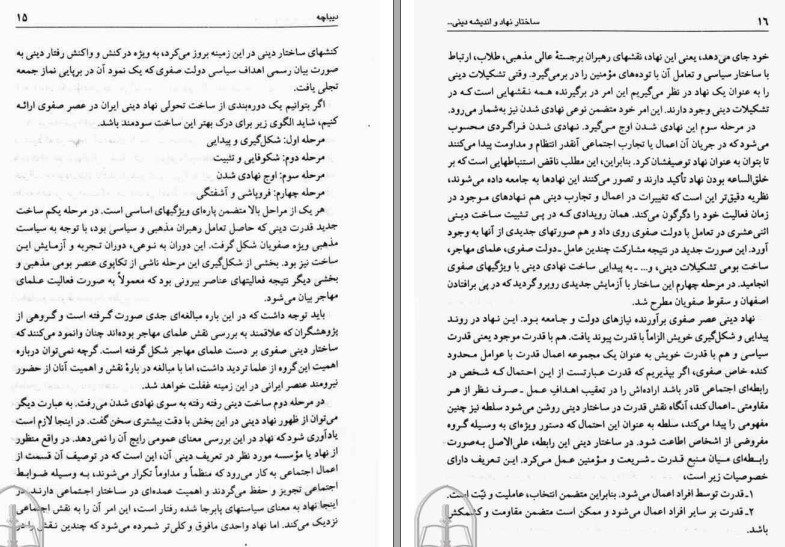 دیباچه ۱۵
کنشهای ساختار دینی در این زمینه بروز می‌کرد، به ویژه درکنش و واکنش رفتار دینی به
صورت بیان رسمی اهداف سیاسی دولت صفوی که یک نمود آن در برپایی نماز جمعه
تجلی یافت.
اگر بتوانیم یک دوره‌بندی از ساخت تحولی نهاد دینی ایران در عصر صفوی ارائه
کنیم، شاید الگوی زیر برای درک بهتر این ساخت سودمند باشد.
مرحله اول: شکل‌گیری و پیدایی
مرحله دوم: شکوفایی و تثبیت
مرحله سوم: اوج نهادی شدن
مرحله چهارم: فروپاشی و آشفتگی
هر یک از مراحل بالا متضمن پاره‌ای ویژگیهای اساسی است. در مرحله یکم ساخت
جدید قدرت دینی که حاصل تعامل رهبران مذهبی و سیاسی بود، با توجه به سیاست
مذهبی ویژه صفویان شکل گرفت. این دوران به نوعی، دوران تجربه و آزمایش این
ساخت نیز بود. بخشی از شکل‌گیری این مرحله ناشی از تکاپوی عنصر بومی مذهبی و
بخشی دیگر نتیجه فعالیتهای عناصر بیرونی بود که معمولاً به صورت فعالیت علمای
مهاجر بیان می‌شود.
باید توجه داشت که در این باره مبالغه‌ای جدی صورت گرفته است و گروهی از
پژوهشگران که علاقمند به بررسی نقش علمای مهاجر بوده‌اند چنان وانمود می‌کنند که
ساختار دینی صفوی بر دست علمای مهاجر شکل گرفته است. گرچه نمی‌توان درباره
اهمیت این گروه از علما تردید داشت، اما با مبالغه در بارهٔ نقش و اهمیت آنان از حضور
نیرومند عنصر ایرانی در این زمینه غفلت خواهد شد.
در مرحله دوم ساخت دینی رفته رفته به سوی نهادی شدن می‌رفت. به عبارت دیگر
می‌توان از ظهور نهاد دینی در این بخش با دقت بیشتری سخن گفت. در اینجا لازم است
یادآوری شود که نهاد در این بررسی معنای عمومی رایج آن را نمی‌دهد. در واقع منظور
از نهاد یا مؤسسه مورد نظر در تعریف دینی آن، این است که در توصیف آن قسمت از
اعمال اجتماعی به کار می‌رود که منظماً و مداوماً تکرار می‌شوند، به وسیله ضوابط
اجتماعی تجویز و حفظ می‌گردند و اهمیت عمده‌ای در ساختار اجتماعی دارند. در
اینجا نهاد به معنای سیاستهای پابرجا شده رفتار است، این امر آن را به نقش اجتماعی
نزدیک می‌کند. اما نهاد واحدی مافوق و کلی‌تر شمرده می‌شود که چندین نقش را در
۱۶ ساختار نهاد و اندیشه دینی...
خود جای می‌دهد، یعنی این نهاد، نقشهای رهبران برجستهٔ عالی مذهبی، طلاب، ارتباط
با ساختار سیاسی و تعامل آن با توده‌های مؤمنین را در برمی‌گیرد. وقتی تشکیلات دینی
را به عنوان یک نهاد در نظر می‌گیریم این امر در برگیرنده همه نقشهایی است که در
تشکیلات دینی وجود دارند. این امر خود متضمن نوعی نهادی شدن نیز به‌شمار می‌رود.
در مرحله سوم این نهادی شدن اوج می‌گیرد. نهادی شدن فراگردی محسوب
می‌شود که در جریان آن اعمال یا تجارب اجتماعی آنقدر انتظام و مداومت پیدا می‌کنند
تا بتوان به عنوان نهاد توصیفشان کرد. بنابراین، این مطلب ناقض استنباطهایی است که بر
خلق‌الساعه بودن نهاد تأکید دارند و تصور می‌کنند این نهادها به جامعه داده می‌شوند،
نظریه دقیق‌تر این است که تغییرات در اعمال و تجارب دینی هم نهادهای موجود در
زمان فعالیت خود را دگرگون می‌کند. همان رویدادی که در پی تثبیت ساخت دینی
اثنی‌عشری در تعامل با دولت صفوی روی داد و هم صورتهای جدیدی از آنها به وجود
آورد. این صورت جدید در نتیجه مشارکت چندین عامل ـ دولت صفوی، علمای مهاجر،
ساخت بومی تشکیلات دینی، و... ـ به پیدایی ساخت نهادی دینی با ویژگیهای صفوی
انجامید. در مرحله چهارم این ساختار با آزمایش جدیدی روبرو گردید که در پی برافتادن
اصفهان و سقوط صفویان مطرح شد.
نهاد دینی عصر صفوی برآورنده نیازهای دولت و جامعه بود. این نهاد در روند
پیدایی و شکل‌گیری خویش الزاماً با قدرت پیوند یافت. هم با قدرت موجود یعنی قدرت
سیاسی و هم با قدرت خویش به عنوان یک مجموعه اعمال قدرت با عوامل محدود
کننده خاص صفوی، اگر بپذیریم که قدرت عبارتست از این احتمال که شخص در
رابطه‌ای اجتماعی قادر باشد اراده‌اش را در تعقیب اهداف عمل ـ صرف نظر از هر
مقاومتی ـ اعمال کند، آنگاه نقش قدرت در ساختار دینی روشن می‌شود سلطه نیز چنین
مفهومی را پیدا می‌کند، سلطه به عنوان این احتمال که دستور ویژه‌ای به وسیله گروه
مفروضی از اشخاص اطاعت شود. در ساختار دینی این رابطه، علی‌الاصل به‌صورت
رابطه‌ای میان منبع قدرت ـ شریعت و مؤمنین عمل می‌کرد. این تعریف دارای
خصوصیات زیر است،
۱ـ قدرت توسط افراد اعمال می‌شود. بنابراین متضمن انتخاب، عاملیت و نیّت است.
۲ـ قدرت بر سایر افراد اعمال می‌شود و ممکن است متضمن مقاومت و کشمکش
باشد.